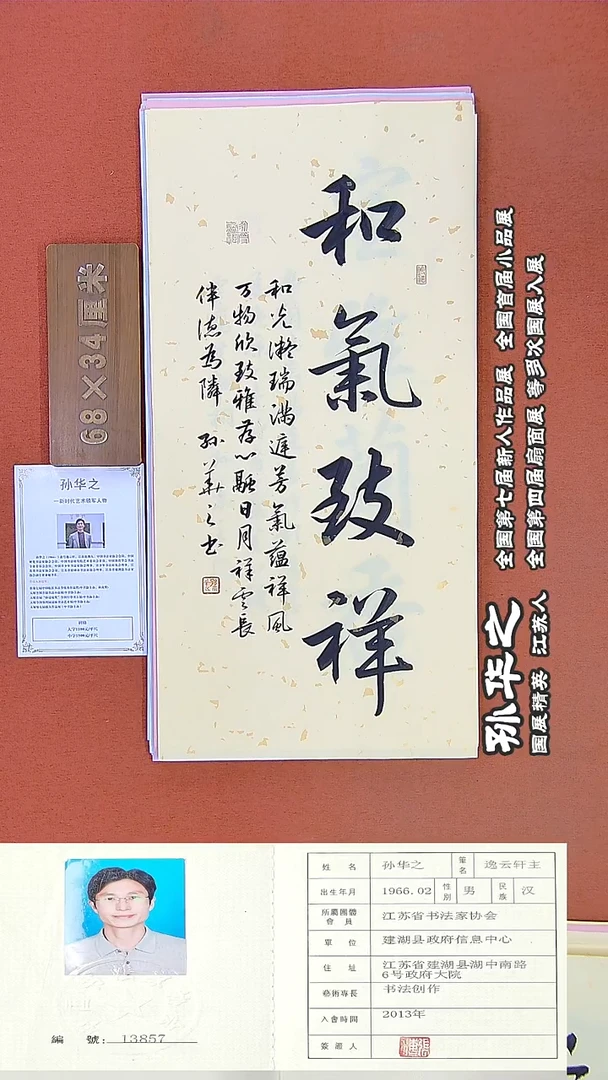 和氣致祥
和光凝瑞满庭芳氣蕴祥風
万物欣致雅存心融日月祥雲長
伴德為隣 孙華之书
68×34厘米
孙华之
—新时代艺术领军人物
全国第七届新人作品展 全国首届小品展
全国第四届扇面展 等多次国展入展
孙华之
国展精英 江苏人
姓名 孙华之 筆名 逸云轩主
出生年月 1966.02 性别 男 民族 汉
所屬團體會員 江苏省书法家协会
單位 建湖县政府信息中心
住址 江苏省建湖县湖中南路
6号政府大院
藝術專長 书法创作
入會時間 2013年
簽證人
編號:13857